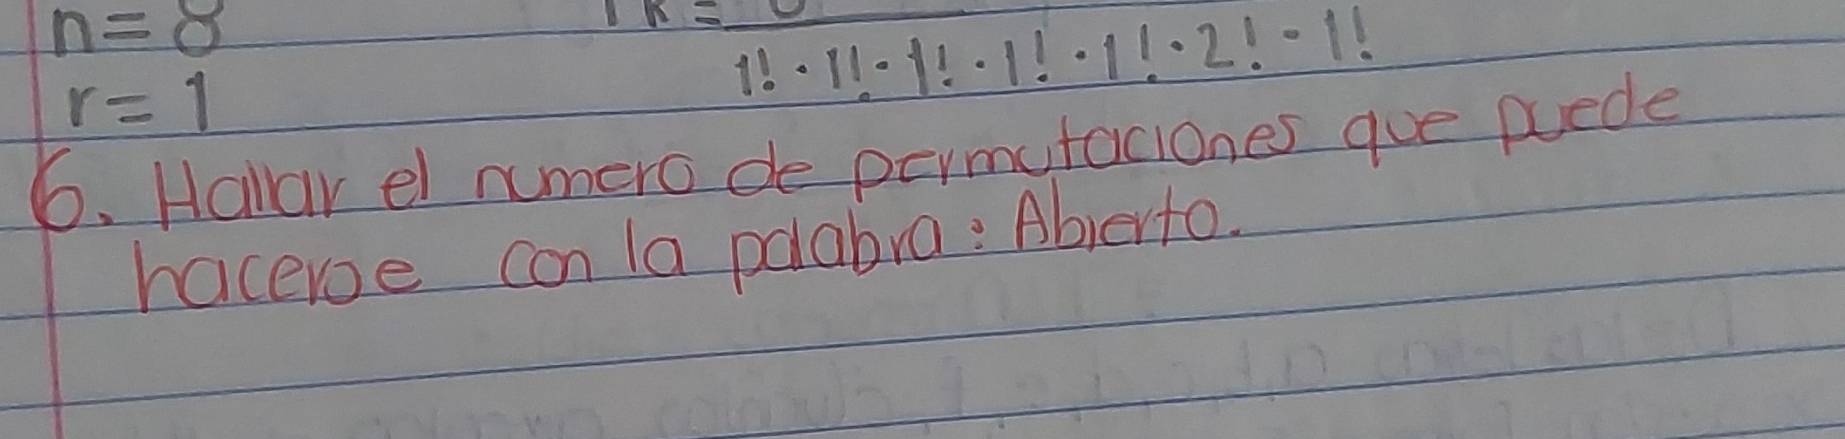 n=8
r=1
1!·1!·1!·1!·1!·2!·1!
6. Hallar el numero de permutaciones que puede
hacerse con la palabra: Abierto.